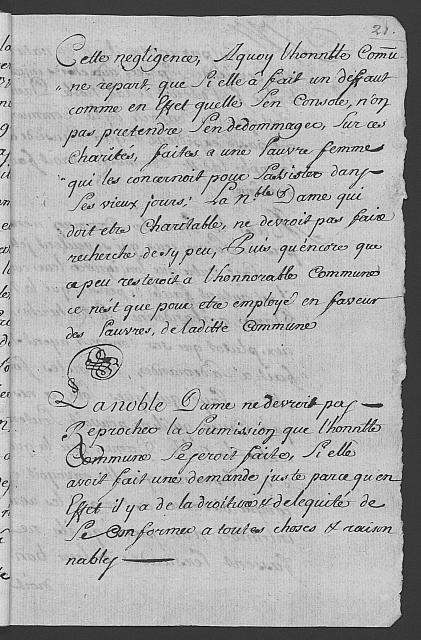 21.
Cette negligence, Aquoy l'honnble Comũ
ne repart, que Si elle â fait un deffaut
comme en Effet quelle S'en Console, n'on
pas pretendre S'en dedommager, Sur ces
Charités, faites a une Pauvre femme
qui les concernoit pour L'assister dans
Ses vieux jours; La n.ble Dame qui
doit etre Charitable, ne devroit pas faire
recherche de sy peu, Puis qu'encore que
ce peu resteroit a l'honnorable Commune
ce n'est que pour etre employé en faveur
des Pauvres, de laditte Commune
La noble Dame ne devroit pas
Reprocher la Soumission que l'honnble
Commune Se seroit faite, Si elle
avoit fait une demande juste parce qu'en
Effet il y a de la droiture & de lequité de
Se Conformer a toutes choses & raison
nables